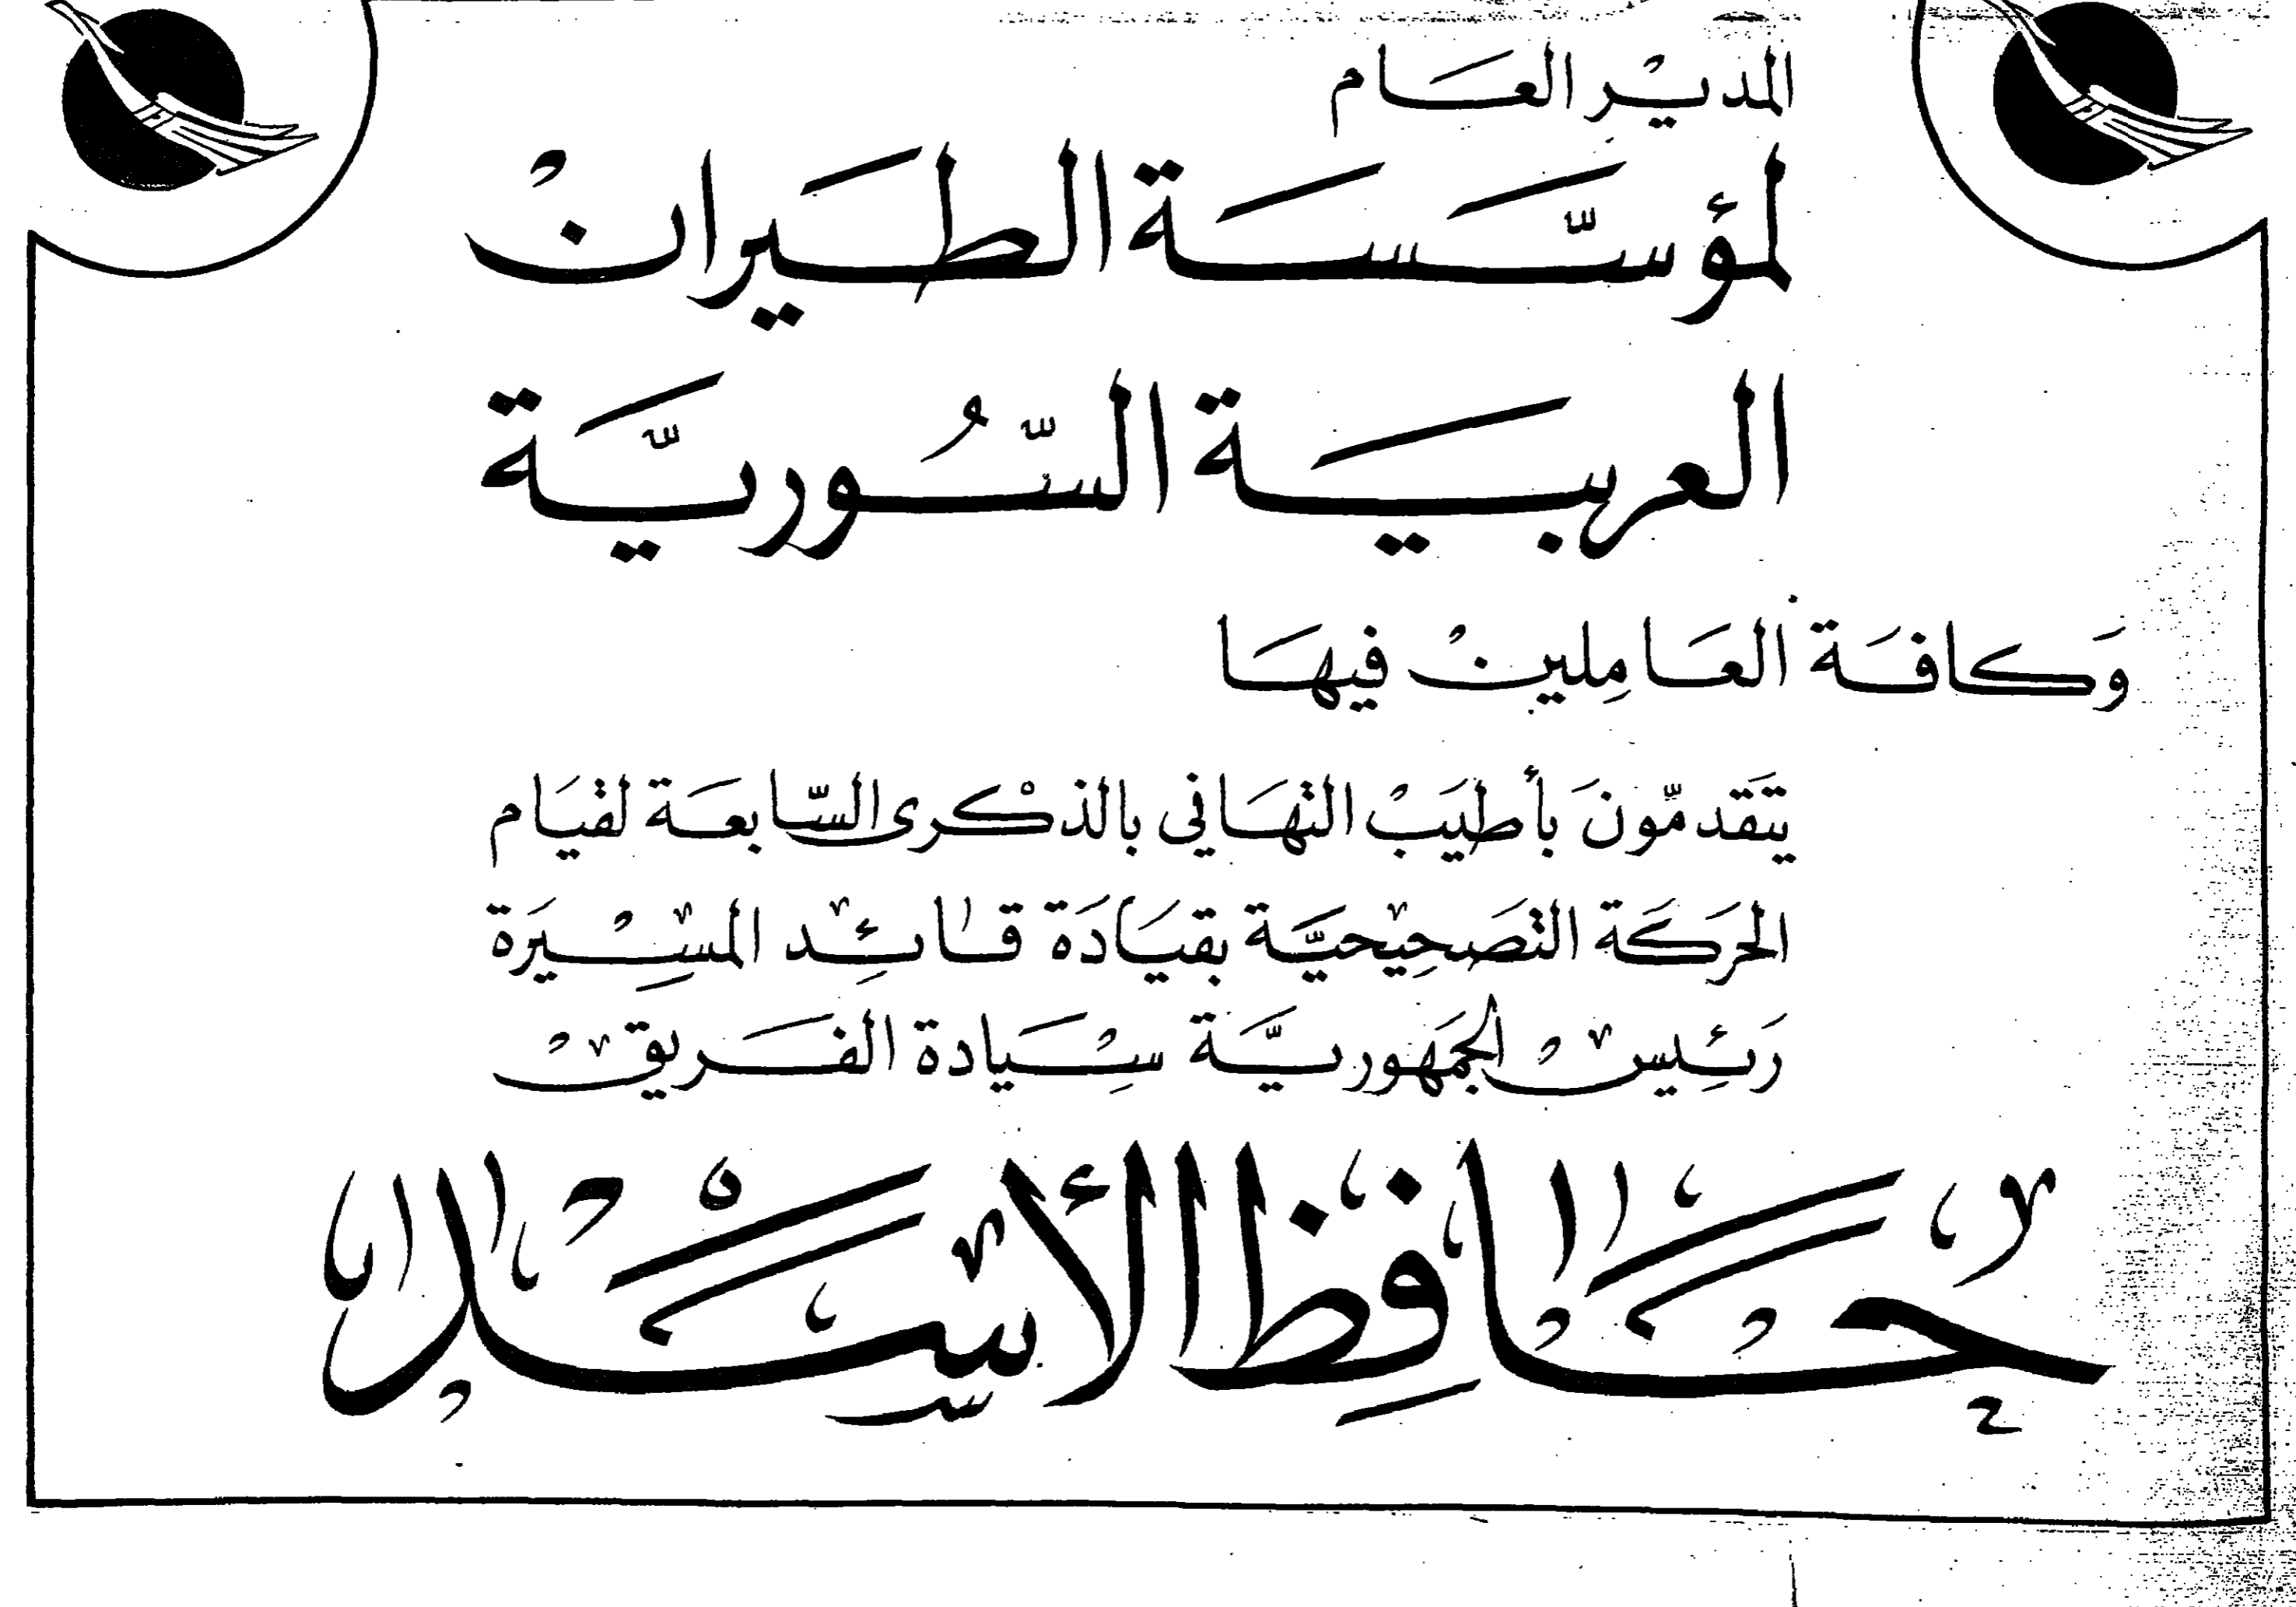 المدير العام
لمؤسّسة الطيران
العربية السّورية
وكافة العاملين فيها
يتقدمّون بأطيب التهاني بالذكرى السّابعة لقيام
الحركة التصحيحيّة بقيادة قائد المسيرة
رئيس الجمهوريّة سيادة الفريق
حافظ الأسد